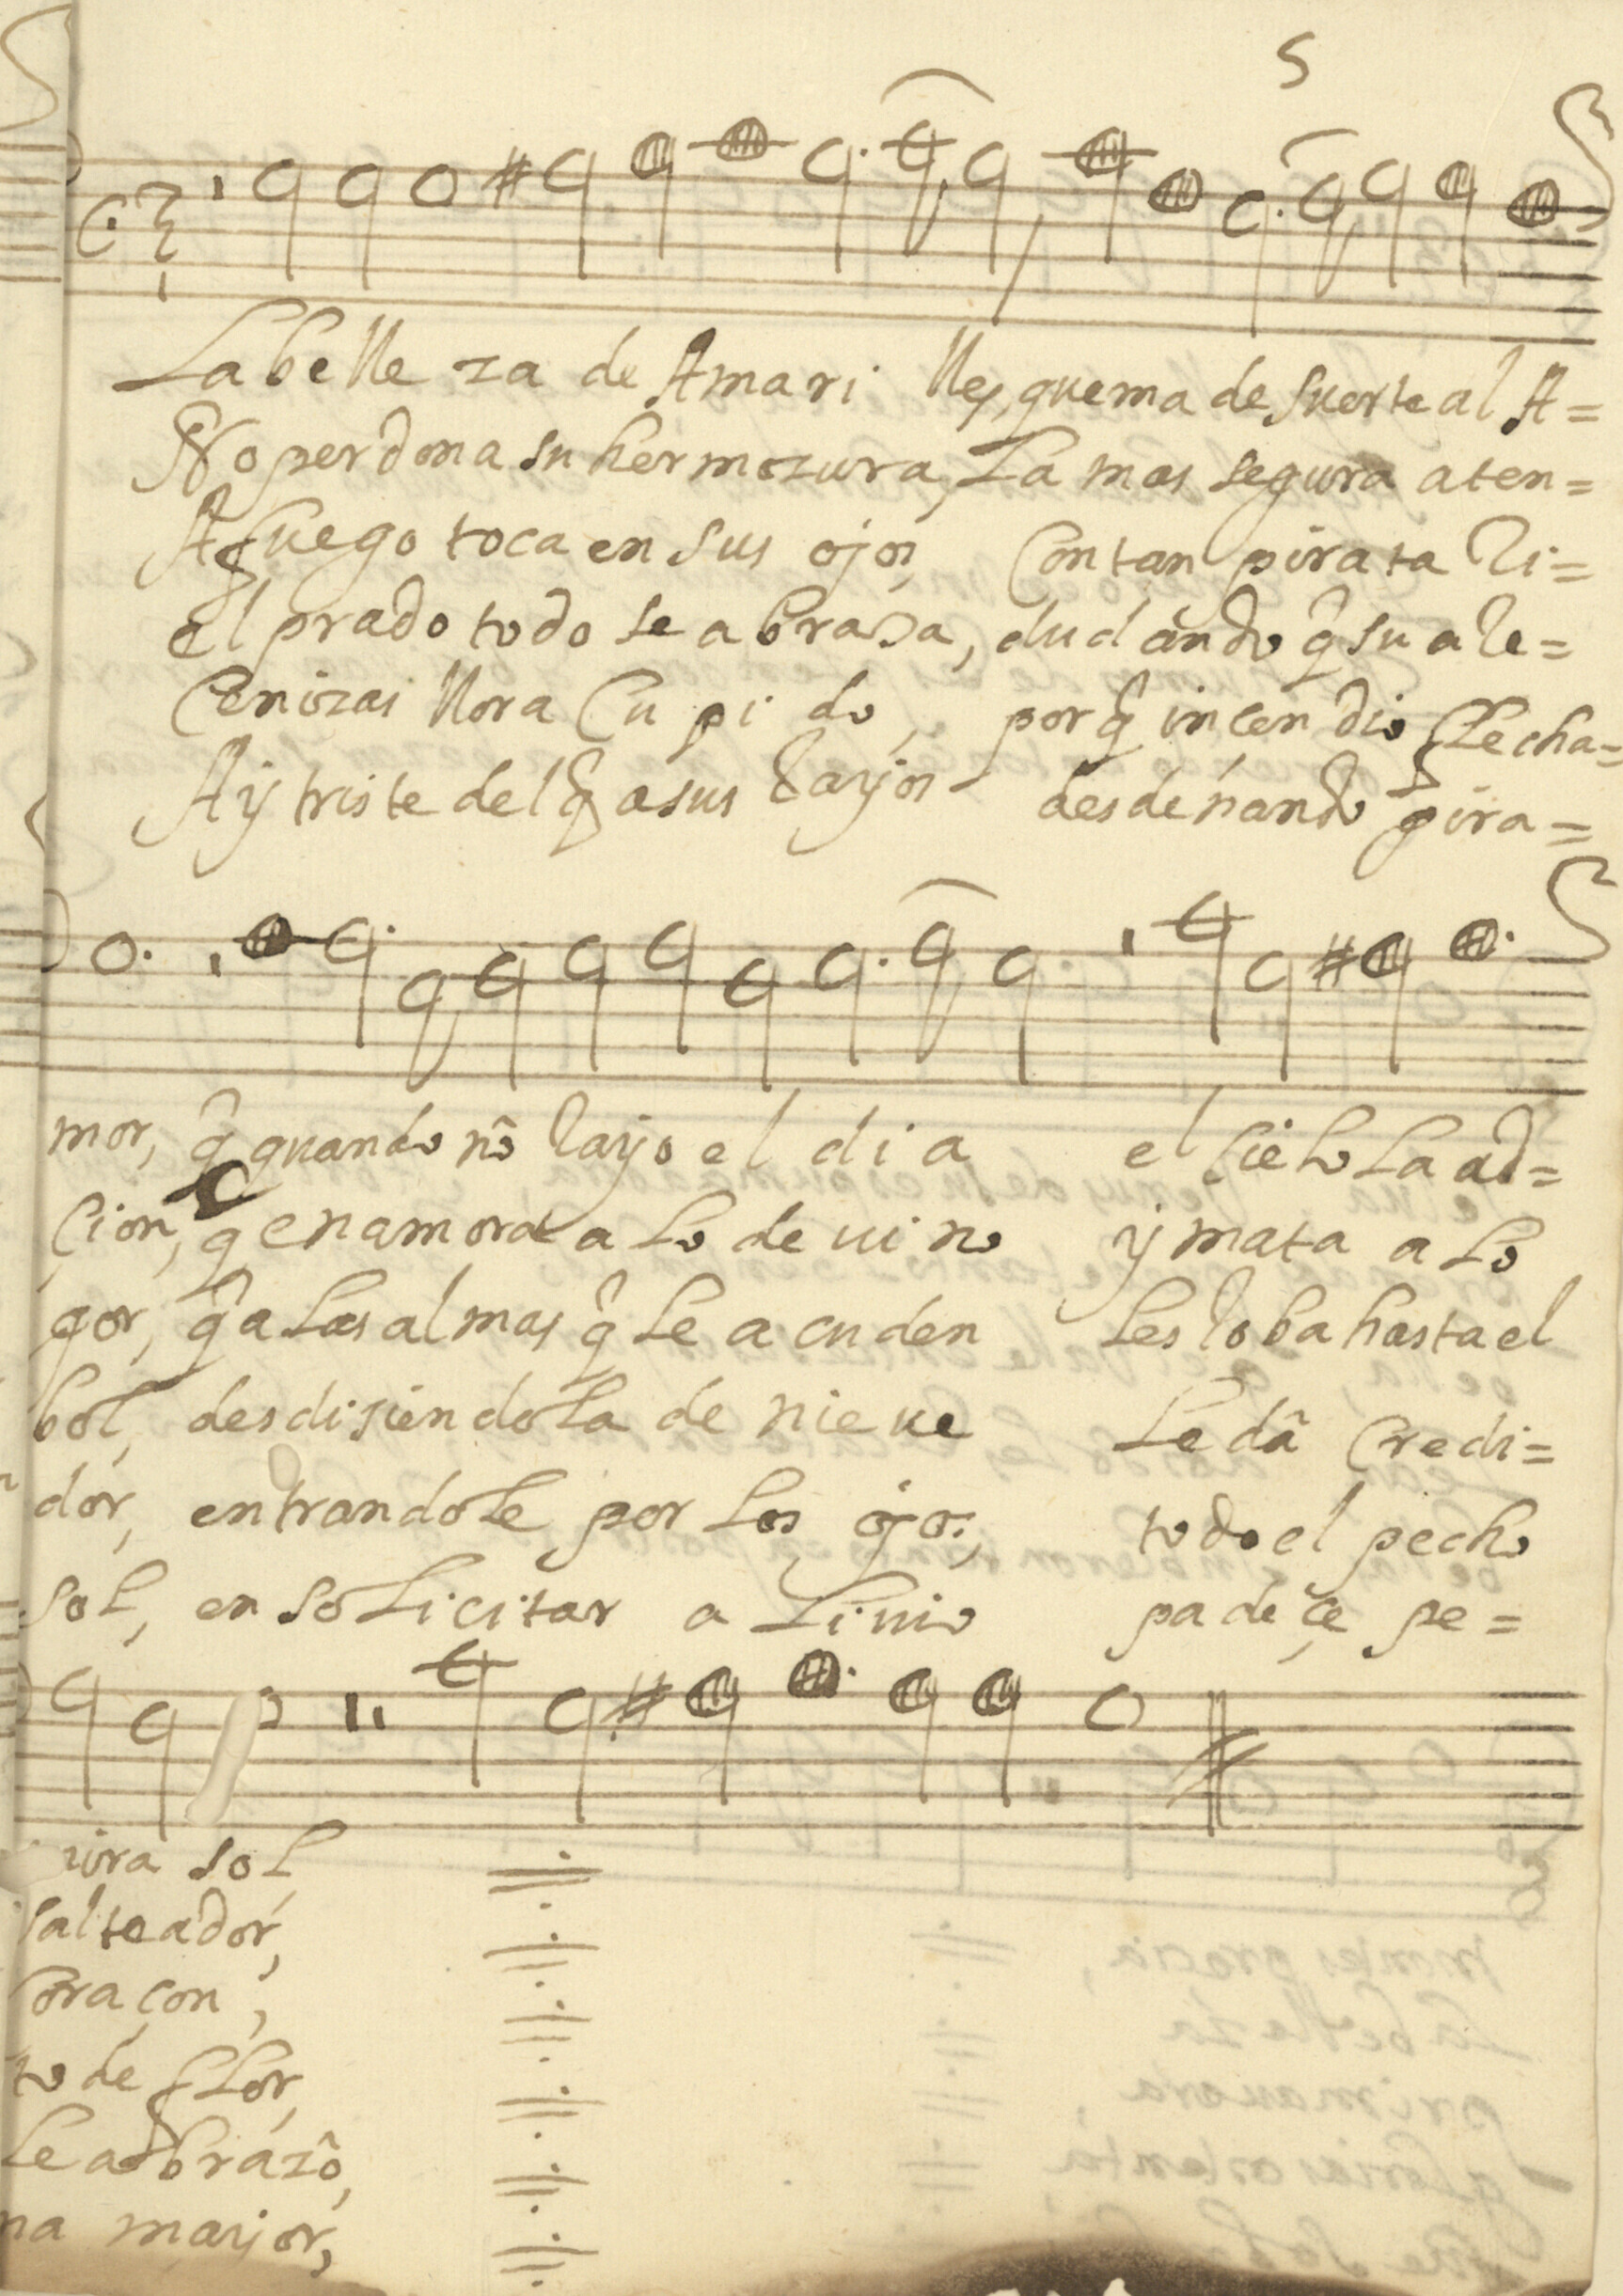 5
La belle za de Amari lles, quema de suerte al A=
No perdona su hermozura, La mas segura aten=
A fuego toca en sus ojos, Con tan pirata Ri=
el prado todo se abraza, dudando q̃ su a Re=
Cenizas llora Cu pi do, porq̃ incendio flecha=
Aÿ triste del q̃ a sus Rayos desdeñando gira=
mor, q̃ quando nõ Rayo el di a el Cielo La ad=
Cion, q̃ enamora a Lo de ui no ÿ mata a Lo
gor, q̃ a Las almas q̃ Le acuden Les Roba hasta el
bol, desdisiendo La de nie ue Le dâ Credi=
dor, entrandole por Los ojos, todo el pecho
sol, en solicitar a Liuio padeçe pe=
mira sol
salteador,
Coraçon,
to de fLor,
Le abrazô,
na mayor,